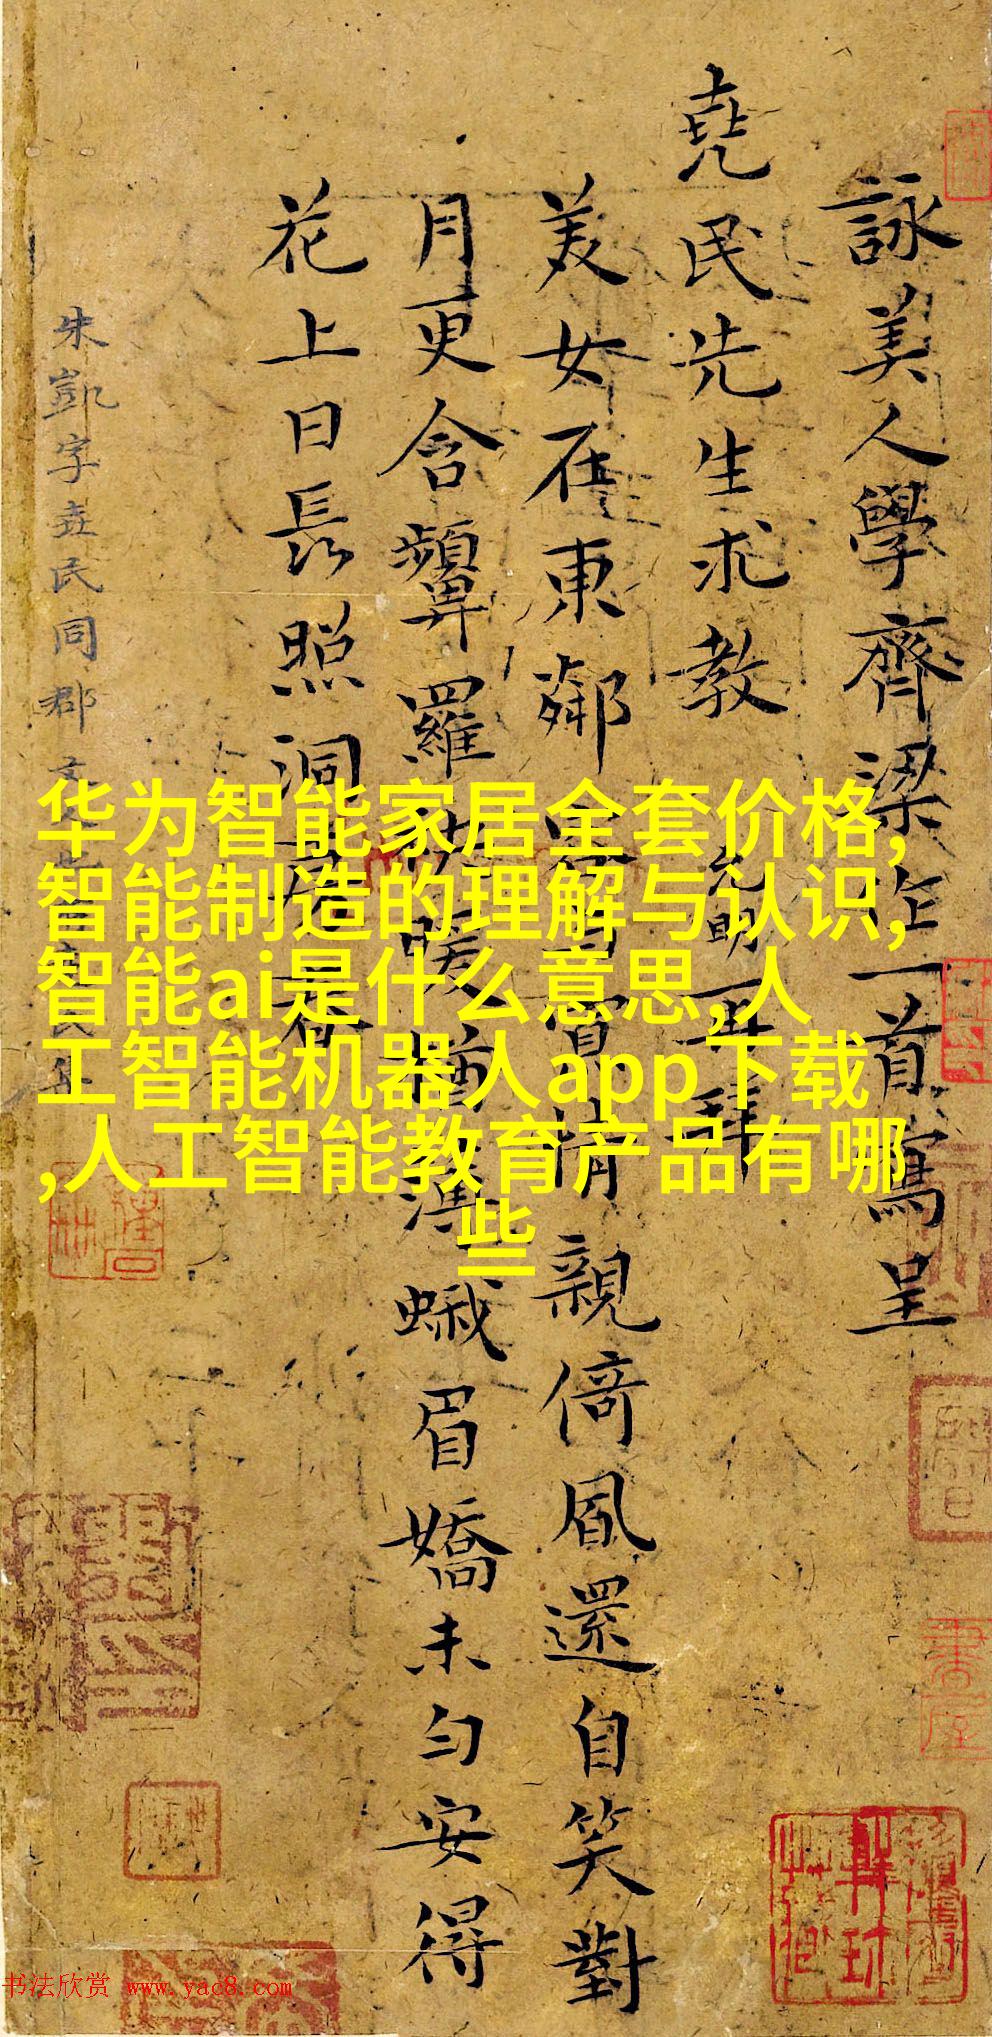 詠美人學齊梁作一首寫呈
堯民先生求教 允明再拜
美女在東鄰情親倚風還自笑對
月更含顰羅暖猶薄蛾眉嬌未匀安得
花上日長照洞房春
朱凱字堯民同郡
华为智能家居全套价格,
智能制造的理解与认识,
智能ai是什么意思,人
工智能机器人app下载
,人工智能教育产品有哪
些
书法欣赏 www.yac8.com